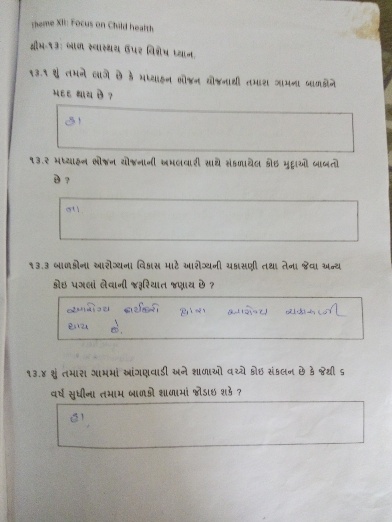 Theme XII: Focus on Child health
થીમ-૧૩: બાળ સ્વાસ્થ્ય ઉપર વિશેષ ધ્યાન.
૧૩.૧ શું તમને લાગે છે કે મધ્યાહન ભોજન યોજનાથી તમારા ગામના બાળકોને
મદદ થાય છે ?
હા
૧૩.૨ મધ્યાહન ભોજન યોજનાની અમલવારી સાથે સંકળાયેલ કોઇ મુદ્દાઓ બાબતો
છે ?
ના
૧૩.૩ બાળકોના આરોગ્યના વિકાસ માટે આરોગ્યની ચકાસણી તથા તેના જેવા અન્ય
કોઇ પગલાં લેવાની જરૂરિયાત જણાય છે ?
આરોગ્ય કર્મચારી દ્વારા આરોગ્ય ચકાસણી
થાય છે.
૧૩.૪ શું તમારા ગામમાં આંગણવાડી અને શાળાઓ વચ્ચે કોઇ સંકલન છે કે જેથી ૬
વર્ષ સુધીના તમામ બાળકો શાળામાં જોડાઇ શકે ?
હા